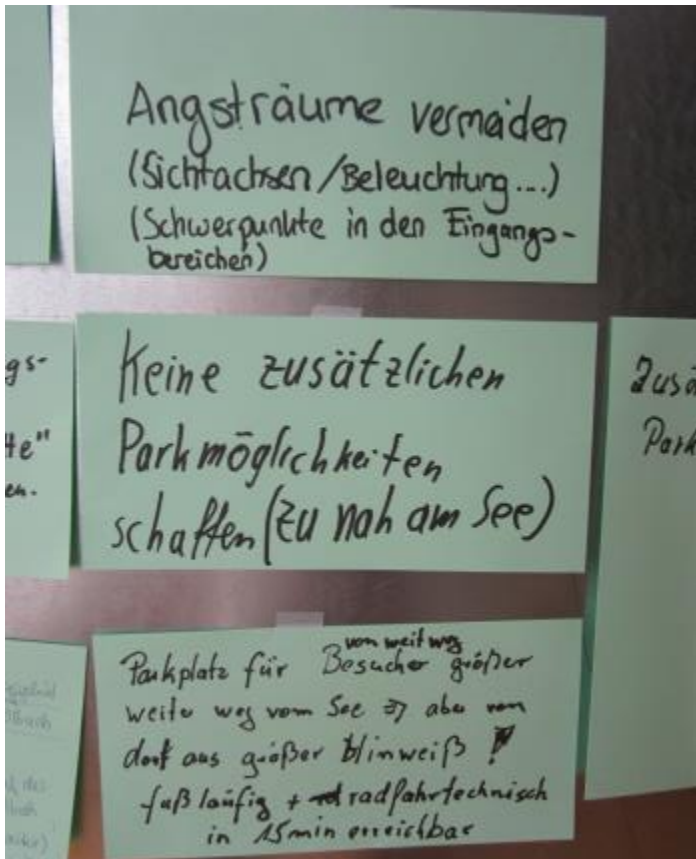 Angsträume vermeiden
(Sichtachsen/Beleuchtung...)
(Schwerpunkte in den Eingangs-
bereichen)
gs-
te"
en.
Keine zusätzlichen
Parkmöglichkeiten
schaffen (zu nah am See)
Zusä
Park
von weit weg
Parkplatz für Besucher größer
weiter weg vom See => aber von
dort aus großer Hinweis
fußläufig + radfahrtechnisch
in 15min erreichbar